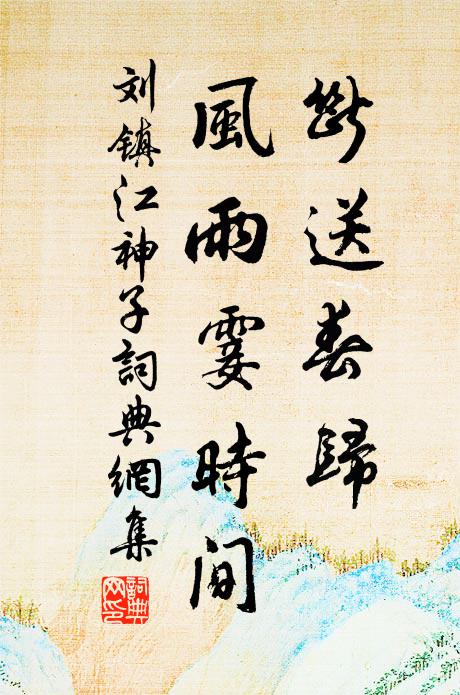 斷送春歸
風雨霎時間
刘鎮江神子詞典網集
詞典网印